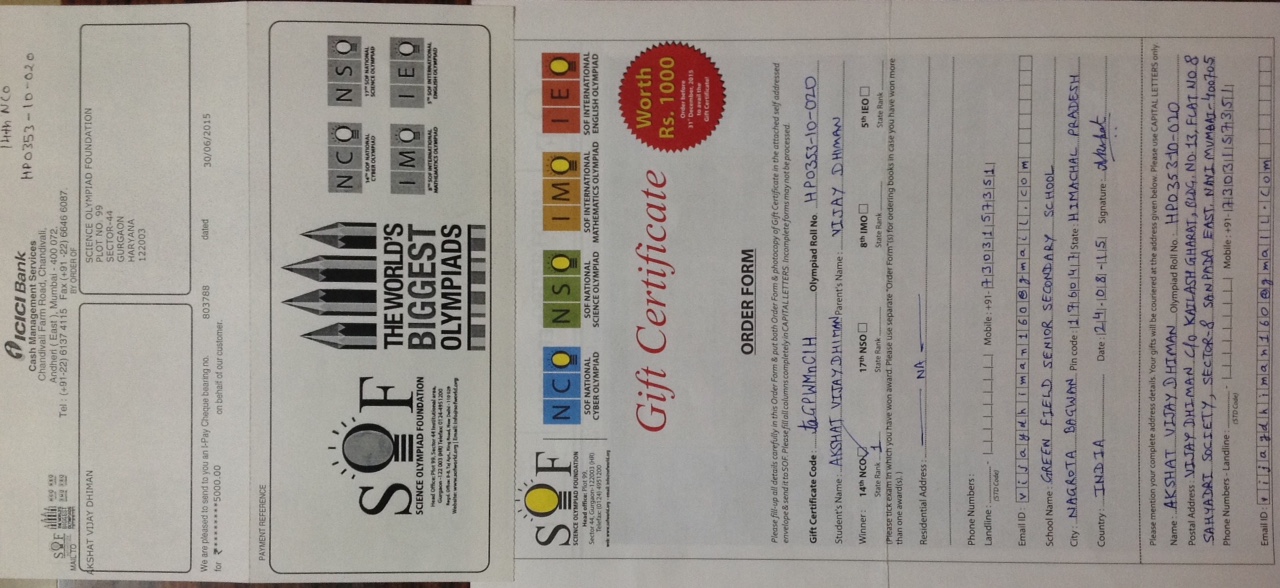 14th NCO
HP0353-10-020
ICICI Bank
Cash Management Services
Chandivali Farm Road, Chandivali,
Andheri ( East ), Mumbai - 400 072.
Tel : (+91-22) 6137 4115 Fax (+91 -22) 6646 6087.
MAIL TO
BY ORDER OF
AKSHAT VIJAY DHIMAN
SCIENCE OLYMPIAD FOUNDATION
PLOT NO. 99
SECTOR-44
GURGAON
HARYANA
122003
We are pleased to send to you an I-Pay Cheque bearing no. 803788 dated 30/06/2015
for ₹********5000.00 on behalf of our customer.
PAYMENT REFERENCE
SOF
SCIENCE OLYMPIAD FOUNDATION
THE WORLD'S
BIGGEST
OLYMPIADS
NCO
14TH SOF NATIONAL
CYBER OLYMPIAD
NSO
17TH SOF NATIONAL
SCIENCE OLYMPIAD
IMO
8TH SOF INTERNATIONAL
MATHEMATICS OLYMPIAD
IEO
5TH SOF INTERNATIONAL
ENGLISH OLYMPIAD
SOF
SCIENCE OLYMPIAD FOUNDATION
Head office: Plot 99,
Sector 44, Gurgaon-122003 (HR)
Telefax: (0124) 4951200
NCO
SOF NATIONAL
CYBER OLYMPIAD
NSO
SOF NATIONAL
SCIENCE OLYMPIAD
IMO
SOF INTERNATIONAL
MATHEMATICS OLYMPIAD
IEO
SOF INTERNATIONAL
ENGLISH OLYMPIAD
Gift Certificate
Worth
Rs. 1000
Order before
31st December, 2015
to avail the
Gift Certificate!
ORDER FORM
Please fill-up all details carefully in this Order Form & put both Order Form & photocopy of Gift Certificate in the attached self addressed
envelope & send it to SOF. Please fill all columns completely in CAPITAL LETTERS. Incomplete forms may not be processed.
Gift Certificate Code : taGPWMnClH Olympiad Roll No. HP0353-10-020
Student's Name : AKSHAT VIJAY DHIMAN Parent's Name : VIJAY DHIMAN
Winner : 14th NCO ✓ 17th NSO 8th IMO 5th IEO
State Rank 1 State Rank State Rank State Rank
(Please tick exam in which you have won award. Please use separate "Order Form"(s) for ordering books in case you have won more
than one award(s).)
Residential Address : NA
Phone Numbers :
Landline : - Mobile : +91- 7303157351
(STD Code)
Email ID : vijaydhiman160@gmail.com
School Name : GREEN FIELD SENIOR SECONDARY SCHOOL
City : NAGROTA BAGWAN Pin code : 176047 State : HIMACHAL PRADESH
Country : INDIA Date : 24-08-15 Signature : Akshat
Please mention your complete address details. Your gifts will be couriered at the address given below. Please use CAPITAL LETTERS only.
Name : AKSHAT VIJAY DHIMAN Olympiad Roll No. : HP0353-10-020
Postal Address : VIJAY DHIMAN C/o KAILASH GHARAT, BLDG. NO. 13, FLAT NO 8
SAHYADRI SOCIETY, SECTOR-8 SANPADA EAST, NAVI MUMBAI-400705
Phone Numbers - Landline : - Mobile : +91- 7303157351
(STD Code)
Email ID : vijaydhiman160@gmail.com